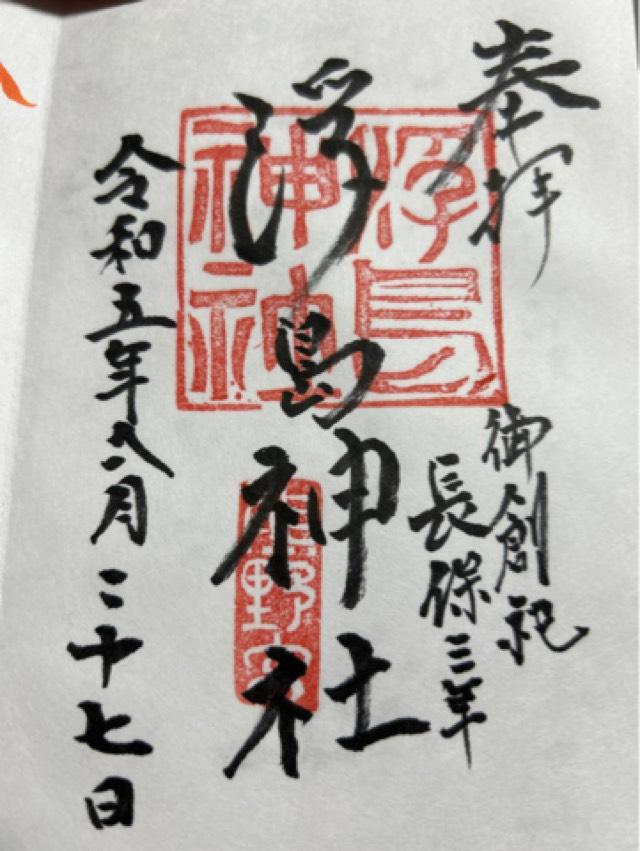 奉拝
御創祀
長保三年
浮島神社
浮島
神社
令和五年八月二十七日